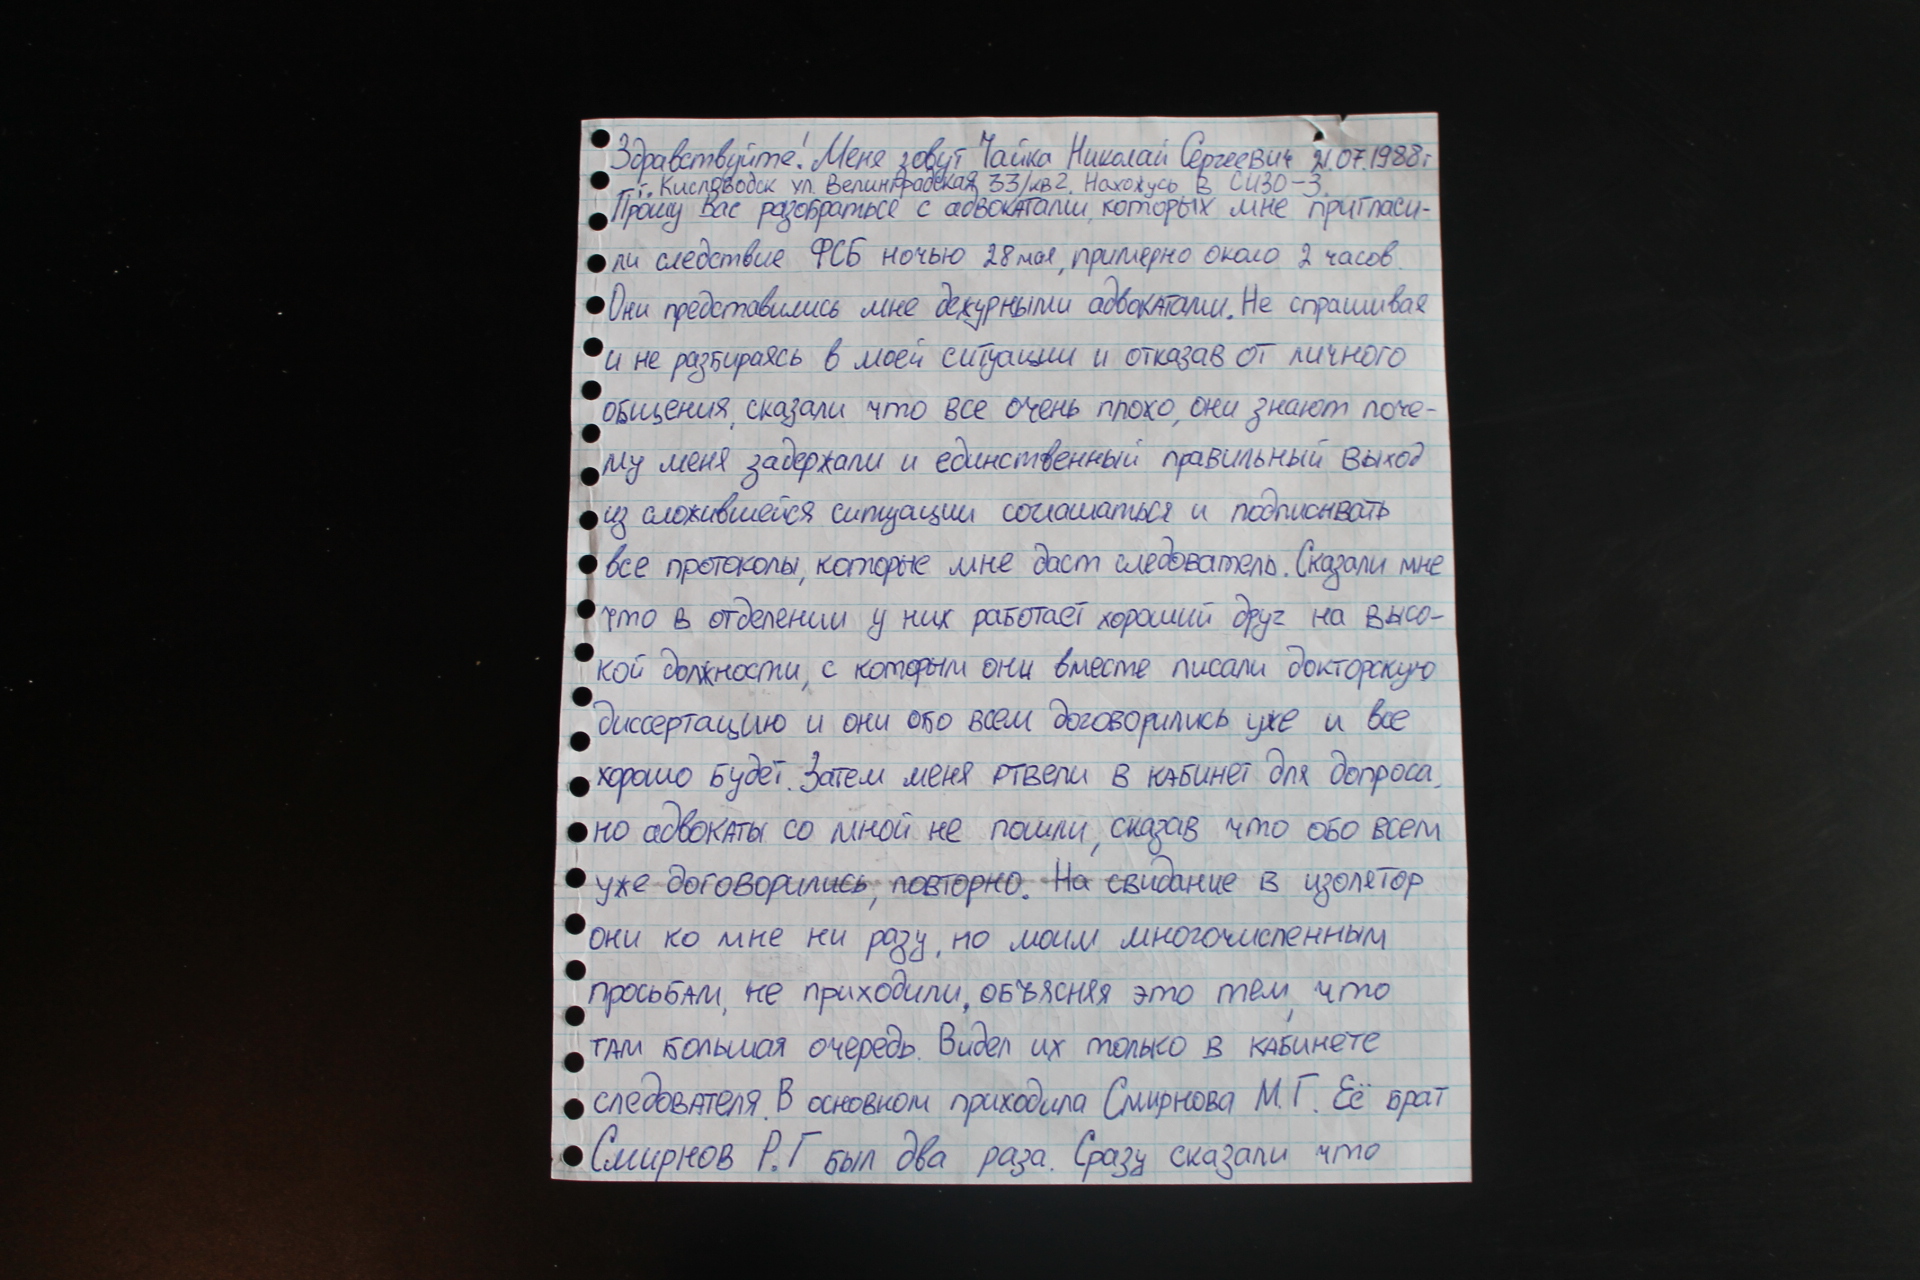 Здравствуйте! Меня зовут Чайка Николай Сергеевич 21.07.1988г
г. Кисловодск ул. Велинградская 33/кв2. Нахожусь в СИЗО-3.
Прошу Вас разобраться с адвокатами, которых мне пригласи-
ли следствие ФСБ ночью 28 мая, примерно около 2 часов.
Они представились мне дежурными адвокатами. Не спрашивая
и не разбираясь в моей ситуации и отказав от личного
общения, сказали что все очень плохо, они знают поче-
му меня задержали и единственный правильный выход
из сложившейся ситуации соглашаться и подписывать
все протоколы, которые мне даст следователь. Сказали мне
что в отделении у них работает хороший друг на высо-
кой должности, с которым они вместе писали докторскую
диссертацию и они обо всем договорились уже и все
хорошо будет. Затем меня отвели в кабинет для допроса,
но адвокаты со мной не пошли, сказав что обо всем
уже договорились, повторно. На свидание в изолятор
они ко мне ни разу, по моим многочисленным
просьбам, не приходили, объясняя это тем, что
там большая очередь. Видел их только в кабинете
следователя. В основном приходила Смирнова М.Г. Её брат
Смирнов Р.Г был два раза. Сразу сказали что